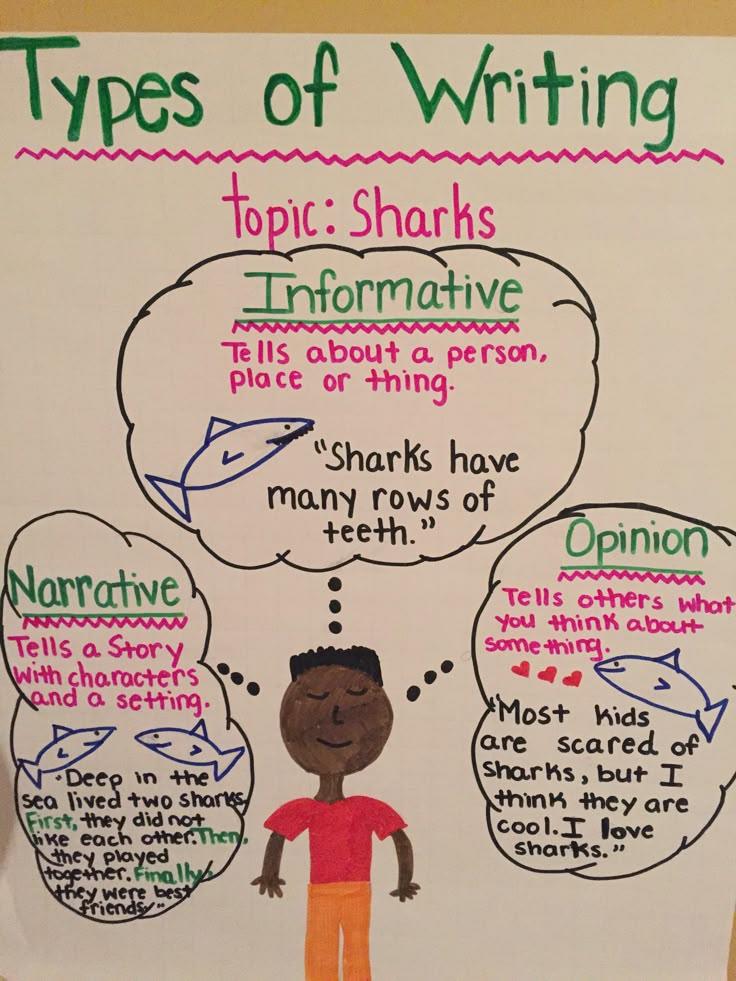 Types of Writing
topic: Sharks
Informative
Tells about a person,
place or thing.
"Sharks have
many rows of
teeth."
Narrative
Tells a Story
with characters
and a setting.
"Deep in the
sea lived two sharks.
First, they did not
like each other. Then,
they played
together. Finally,
they were best
friends."
Opinion
Tells others what
you think about
something.
"Most kids
are scared of
sharks, but I
think they are
cool. I love
sharks."